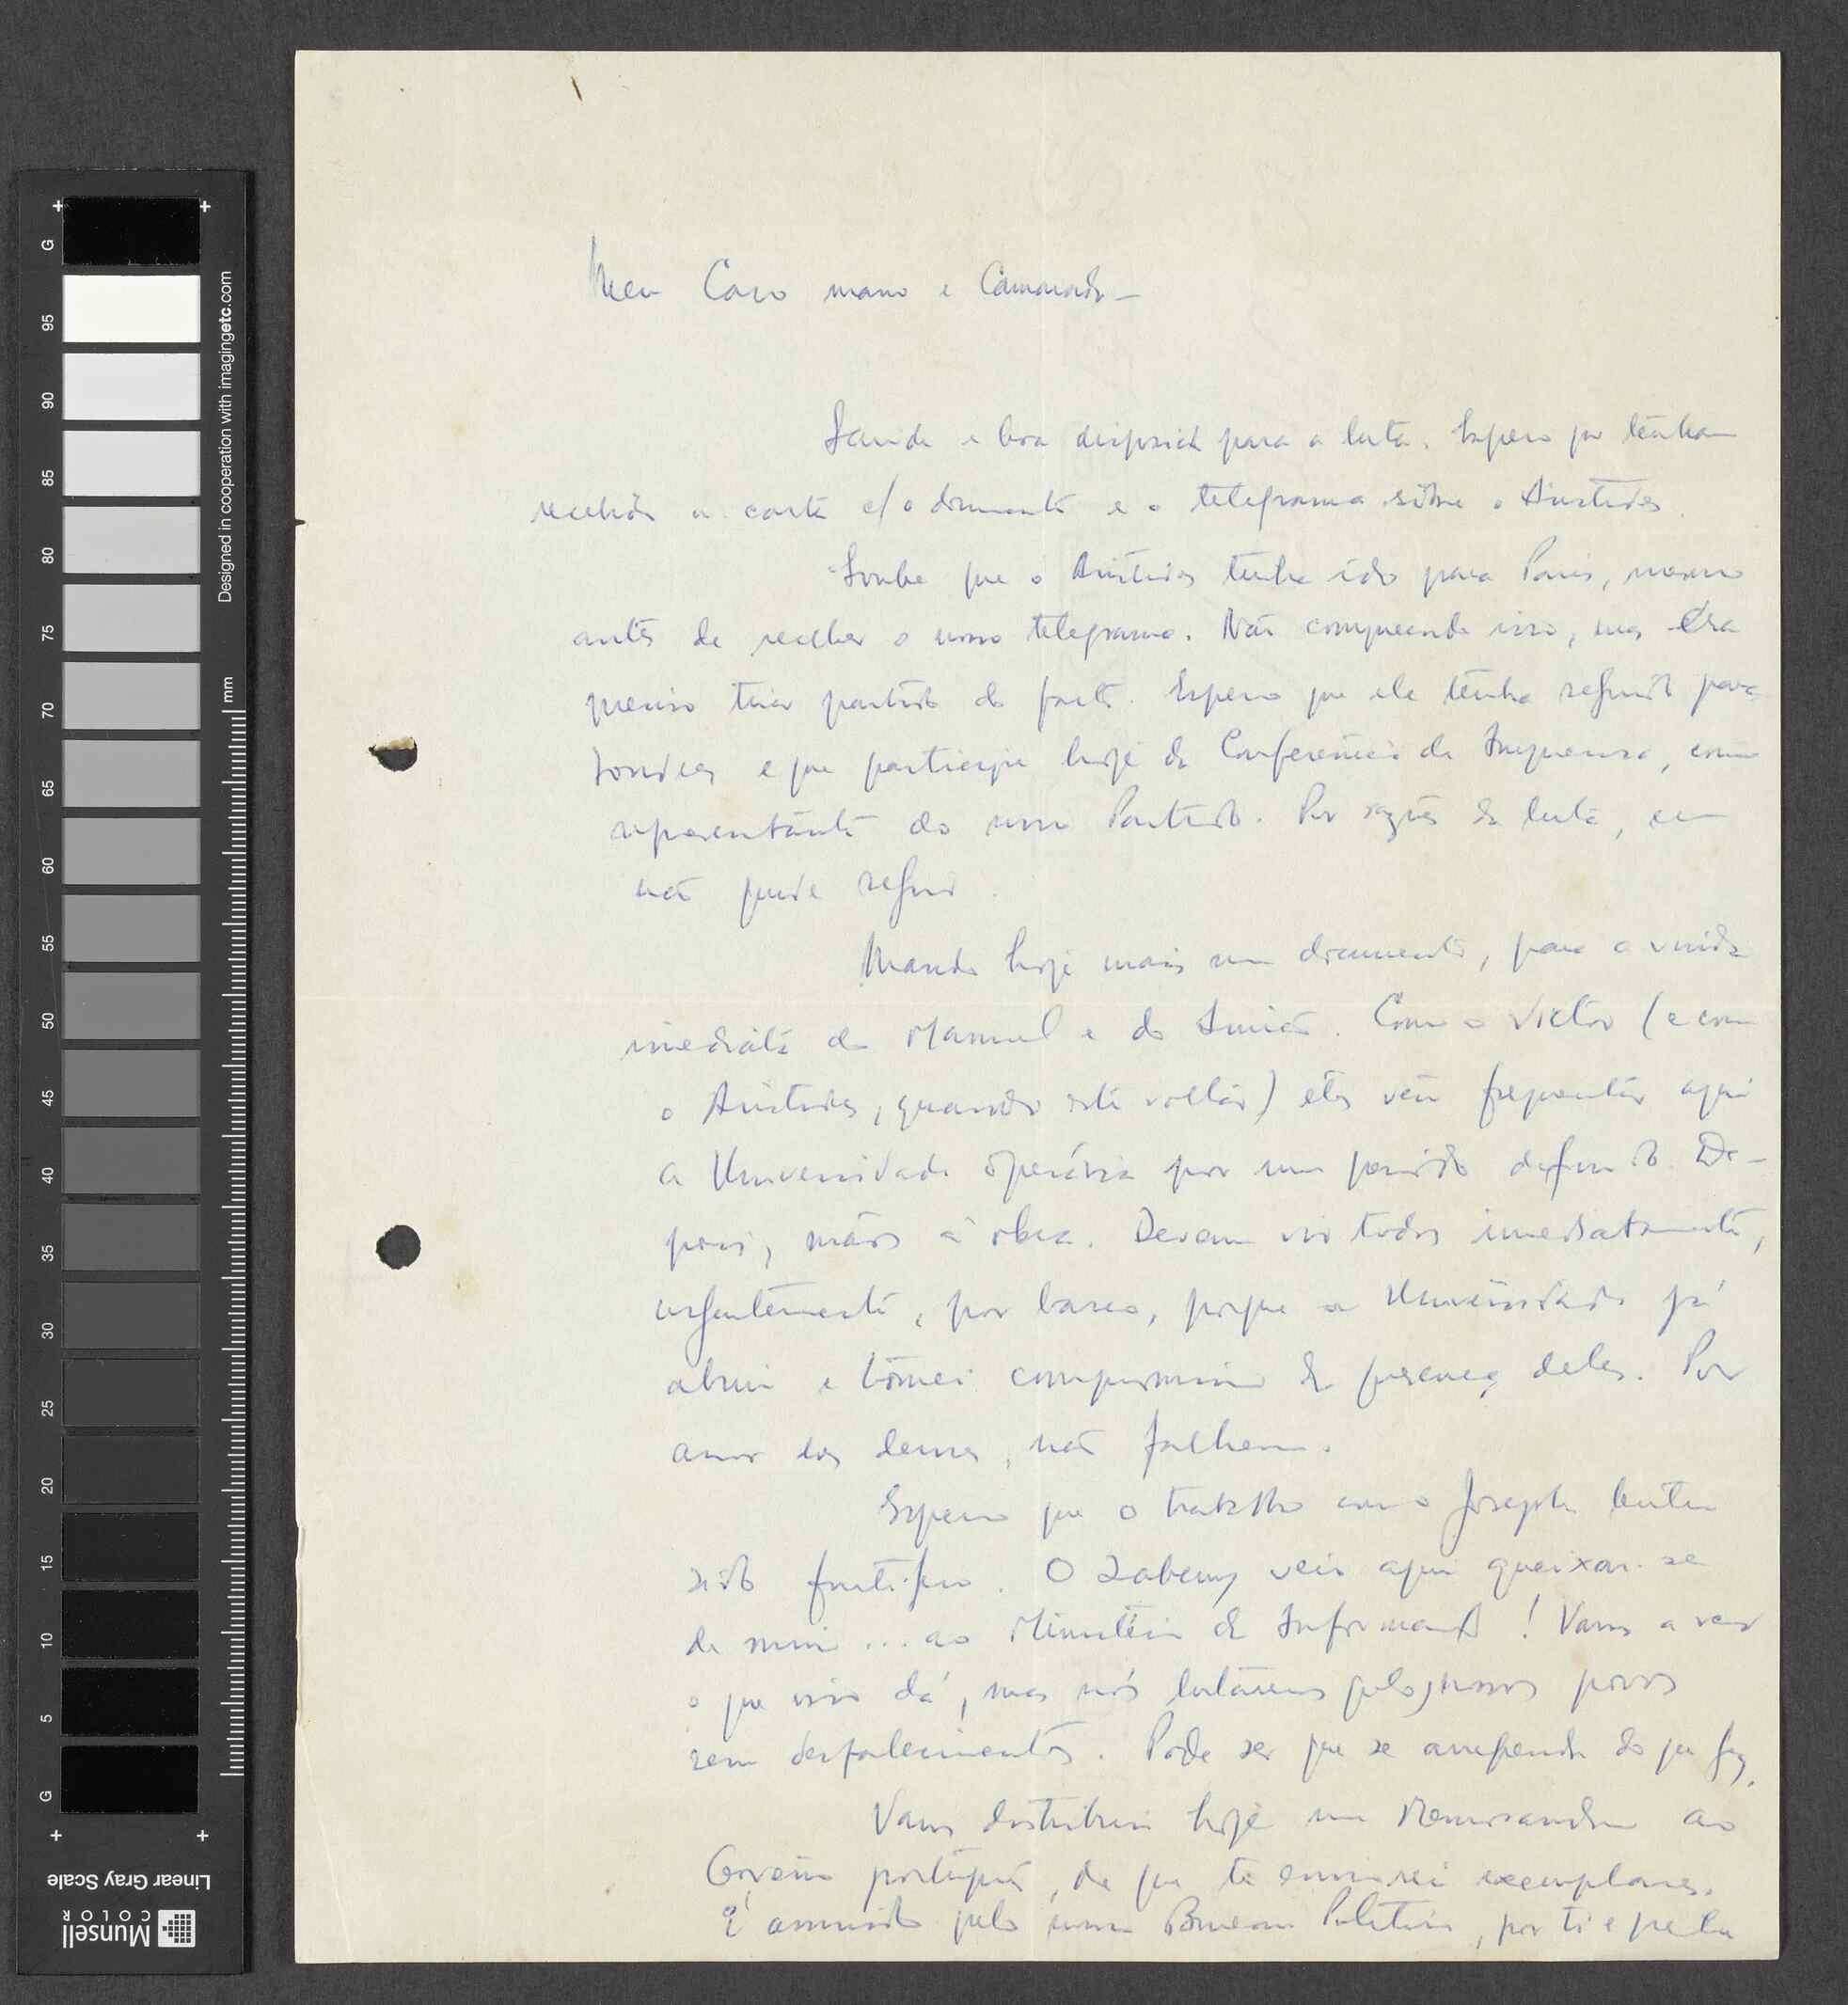 Meu Caro mano e Camarada —
Saúde e boa disposição para a luta. Espero que tenham
recebido a carta c/ o documento e o telegrama sôbre o Aristides.
Soube que o Aristides tinha ido para Paris, mesmo
antes de receber o nosso telegrama. Não compreendo isso, mas era
preciso tirar partido do facto. Espero que ele tenha seguido para
Londres e que participe hoje da Conferência de Imprensa, como
representante do nosso Partido. Por razões da luta, eu
não pude seguir.
Mando hoje mais um documento, para a vinda
imediata do Manuel e do . Com o Victor (e com
o Aristides, quando este voltar) eles vêm frequentar aqui
a Universidade Operária por um período definido. De-
pois, mãos à obra. Devem vir todos imediatamente,
urgentemente, por barco, porque a Universidade já
abriu e tomei compromisso da presença deles. Por
amor dos deuses, não falhem.
Espero que o trabalho com o Joseph tenha
sido frutífero. O Labery veio aqui queixar-se
de mim ... ao Ministério da Informação! Vamos a ver
o que isso dá, mas nós lutaremos pelos nossos povos
sem desfalecimentos. Pode ser que se arrependa do que fez.
Vamos distribuir hoje um Memorandum ao
Govêrno português, de que te enviarei exemplares.
É assinado pelo nosso Bureau Politico, por ti e pela
G
95
90
85
80
75
70
65
60
55
50
45
40
35
30
25
20
15
10
5
G
mm
Designed in cooperation with imagingetc.com
Linear Gray Scale
Munsell
COLOR